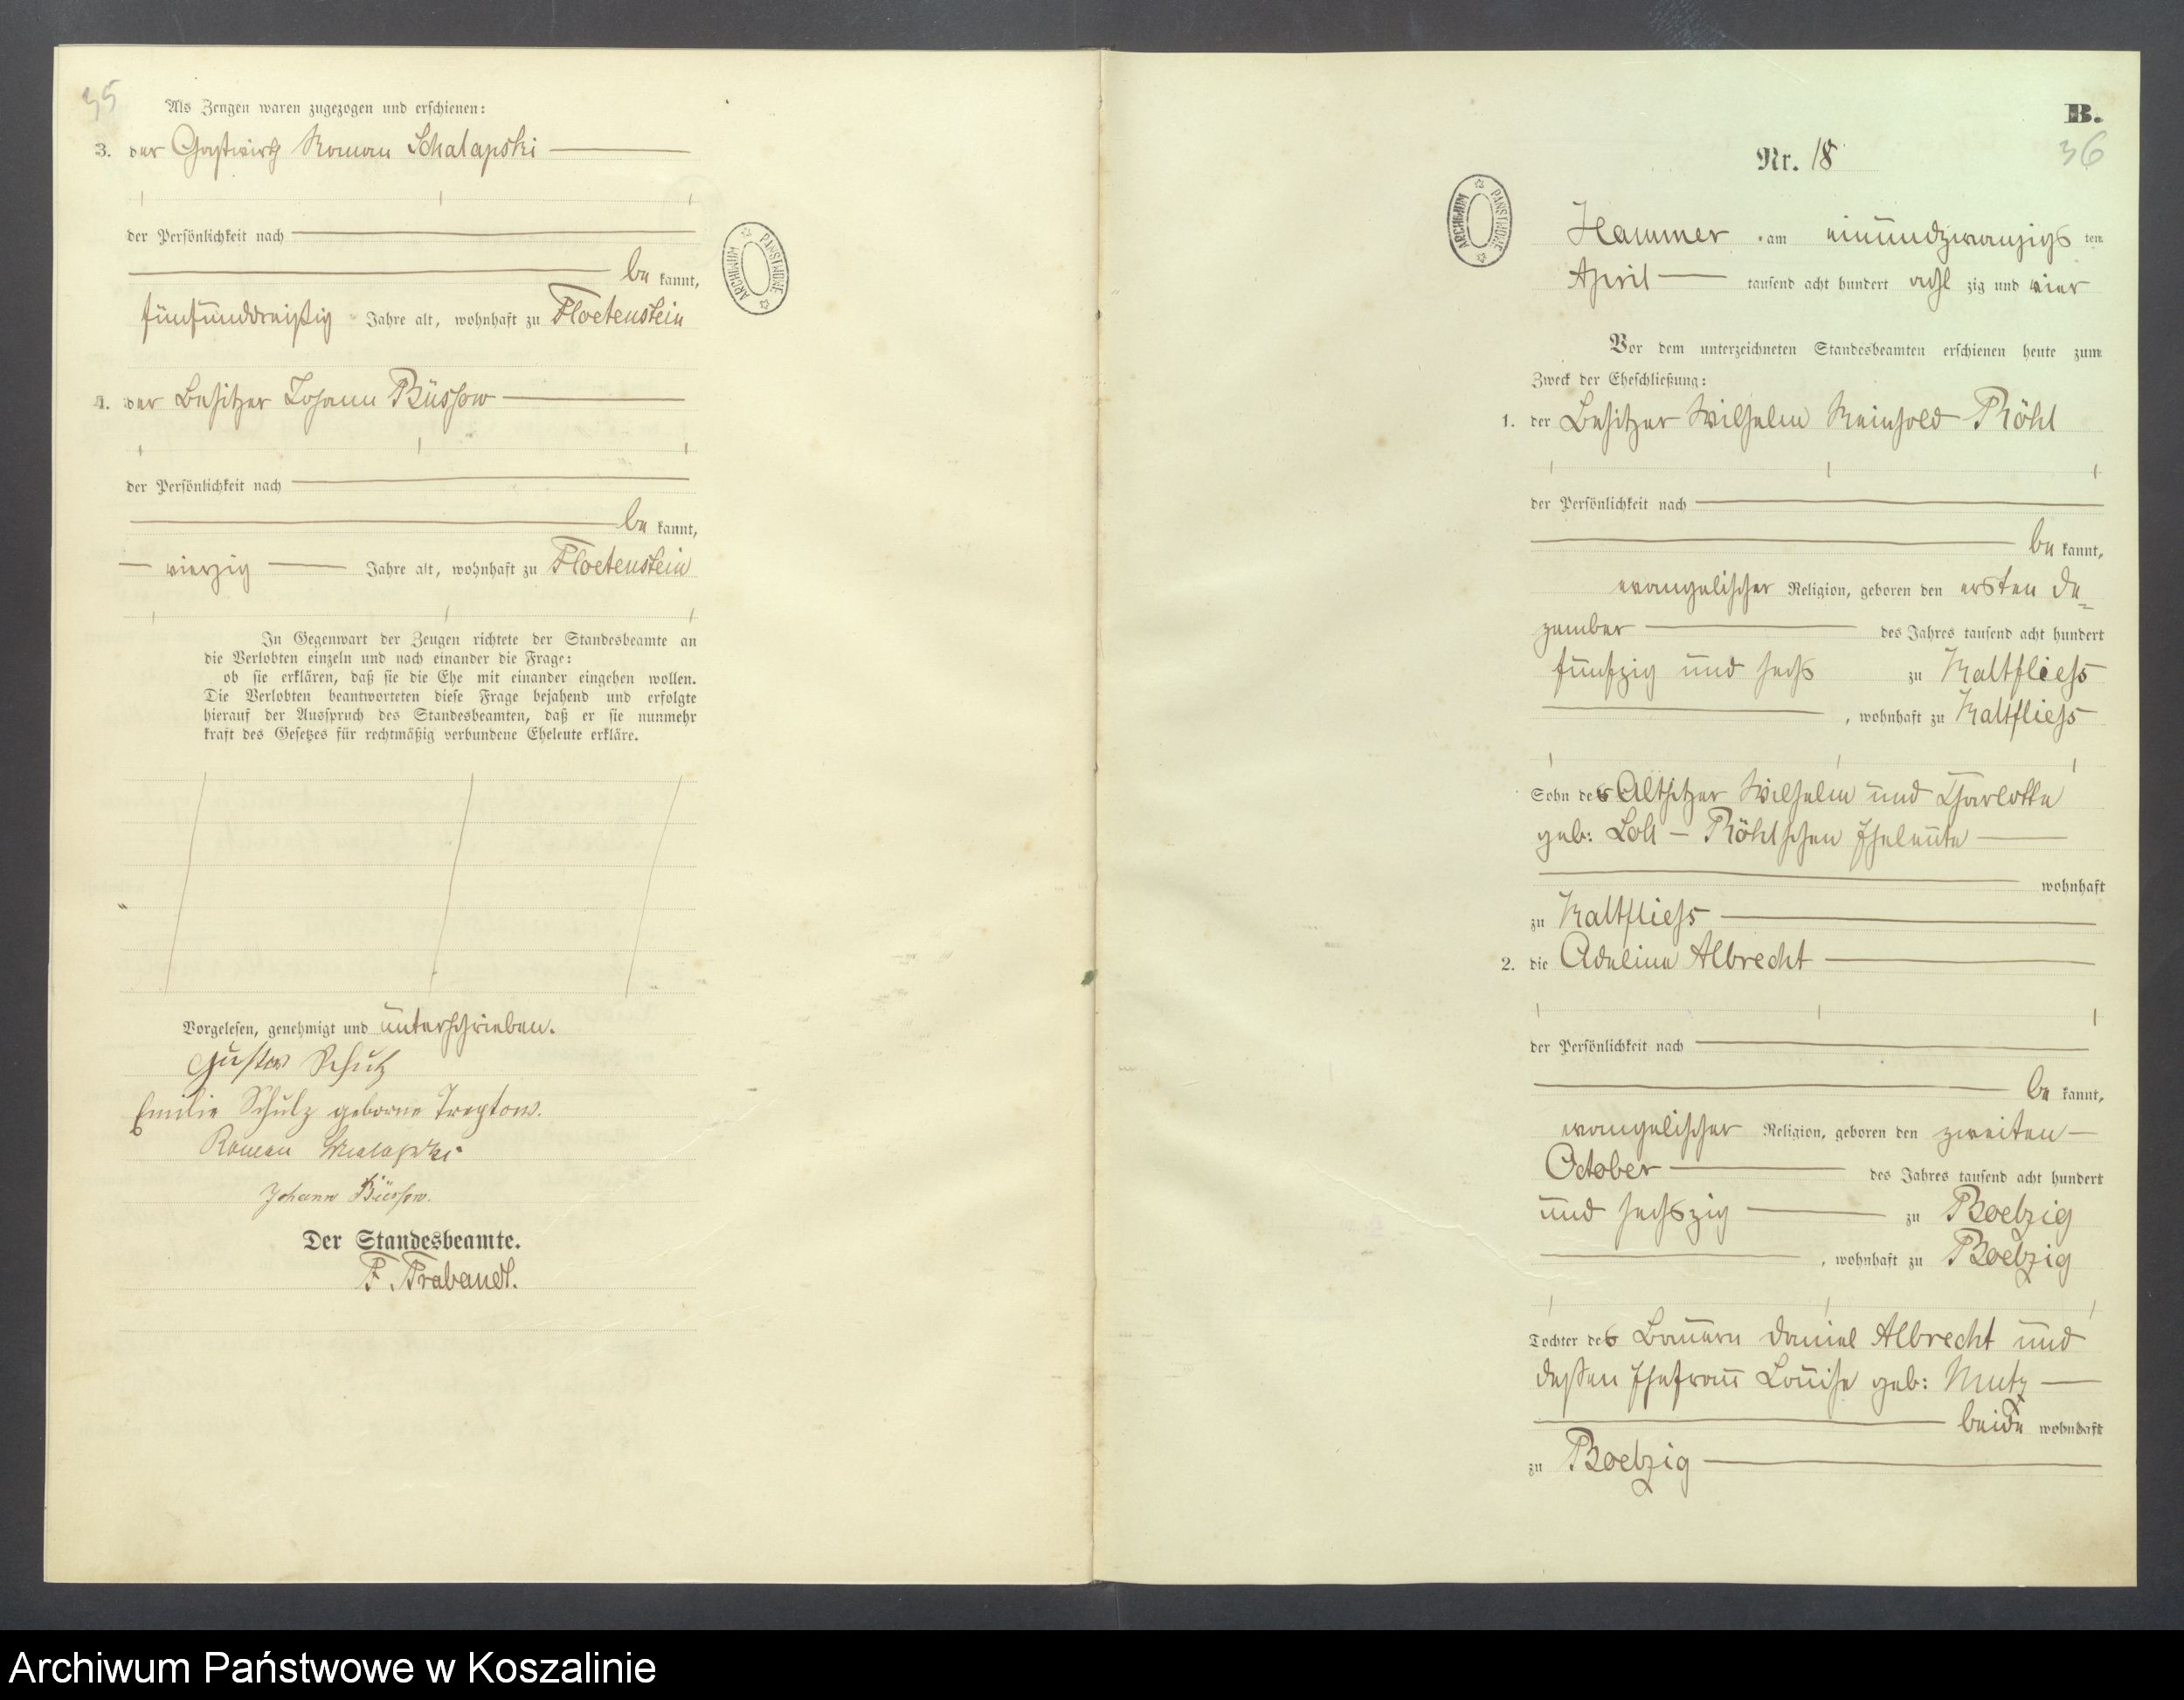 35
Als Zeugen waren zugezogen und erschienen:
3. der Gastwirth Roman Schalapski
der Persönlichkeit nach
be kannt,
fünfunddreißig Jahre alt, wohnhaft zu Floetenstein
4. der Besitzer Johann Büssow
der Persönlichkeit nach
be kannt,
vierzig Jahre alt, wohnhaft zu Floetenstein
In Gegenwart der Zeugen richtete der Standesbeamte an
die Verlobten einzeln und nach einander die Frage:
ob sie erklären, daß sie die Ehe mit einander eingehen wollen.
Die Verlobten beantworteten diese Frage bejahend und erfolgte
hierauf der Ausspruch des Standesbeamten, daß er sie nunmehr
kraft des Gesetzes für rechtmäßig verbundene Eheleute erkläre.
Vorgelesen, genehmigt und unterschrieben.
Gustav Schulz
Emilie Schulz geborne Treptow.
Roman
Johann Büssow.
Der Standesbeamte.
F. Brabandt.
ARCHIWUM PAŃSTWOWE
B.
36
Nr. 18
ARCHIWUM PAŃSTWOWE
Hammer am einundzwanzigs ten
April tausend acht hundert acht zig und vier
Vor dem unterzeichneten Standesbeamten erschienen heute zum
Zweck der Eheschließung:
1. der Besitzer Wilhelm Reinhold Röhl
der Persönlichkeit nach
be kannt,
evangelischer Religion, geboren den ersten De=
zember des Jahres tausend acht hundert
fünfzig und sechs zu Kaltfliess
, wohnhaft zu Kaltfliess
Sohn des Altsitzer Wilhelm und Charlotte
geb: Loll - Röhlschen Eheleute
wohnhaft
zu Kaltfliess
2. die Adeline Albrecht
der Persönlichkeit nach
be kannt,
evangelischer Religion, geboren den zweiten
October des Jahres tausend acht hundert
und sechszig zu Boelzig
, wohnhaft zu Boelzig
Tochter des Bauern Daniel Albrecht und
dessen Ehefrau Louise geb: Mutz
beide wohnhaft
zu Boelzig
Archiwum Państwowe w Koszalinie